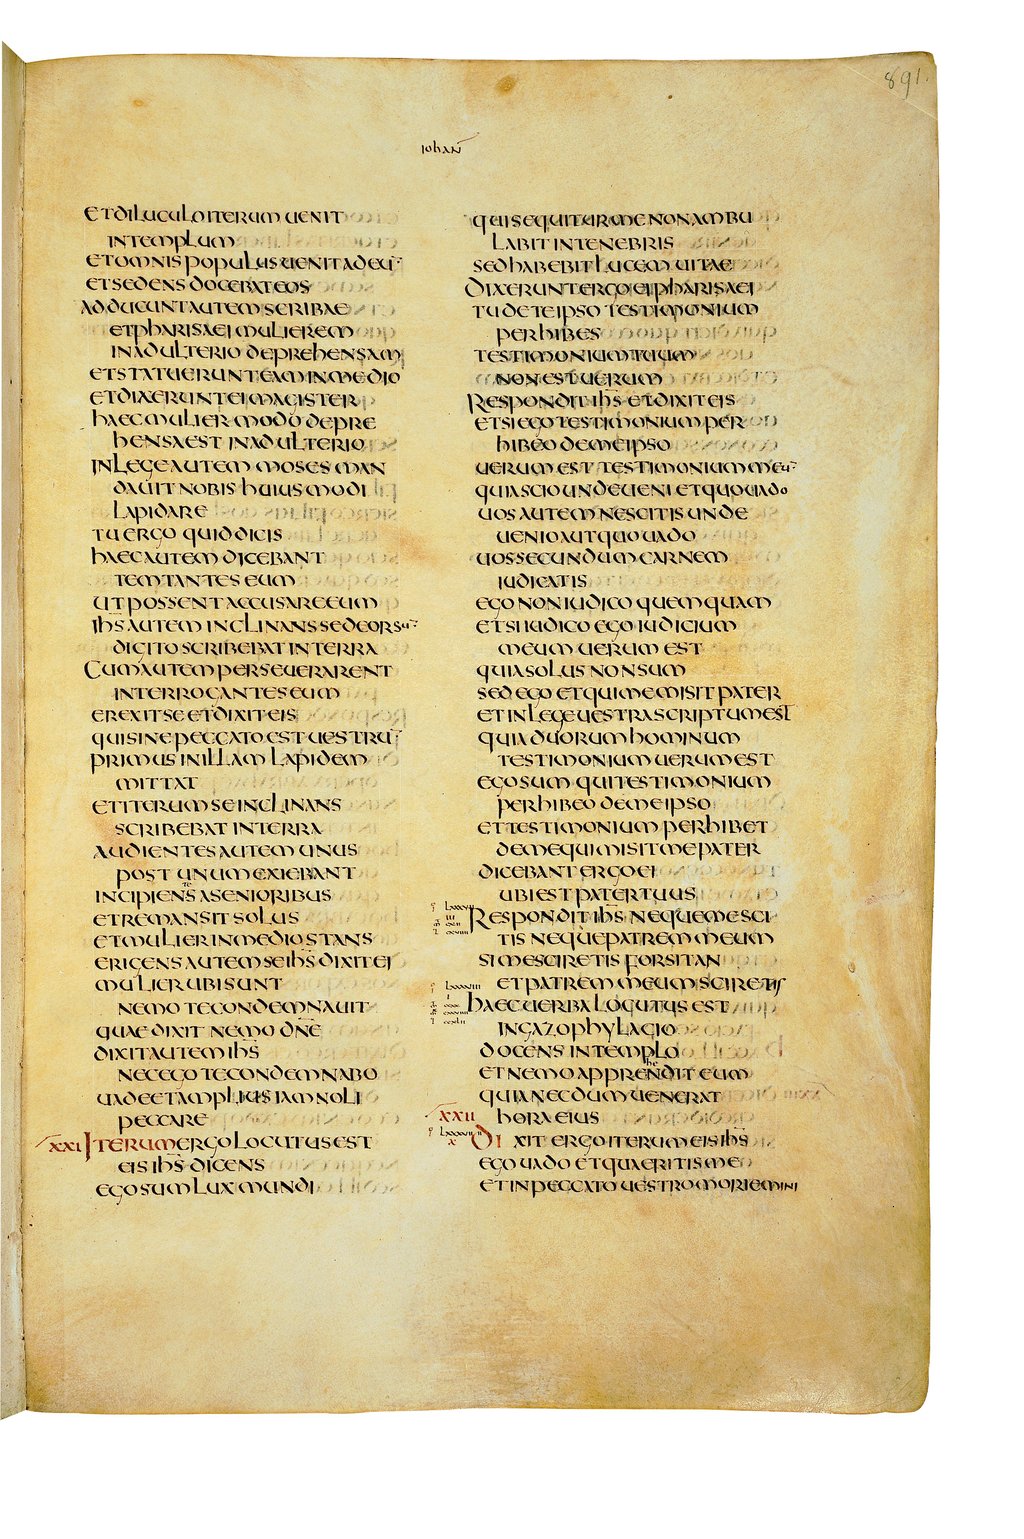 891.
iohan̄
ET DILUCULO ITERUM UENIT
IN TEMPLUM
ET OMNIS POPULUS UENIT AD EU̅
ET SEDENS DOCEBAT EOS
ADDUCUNT AUTEM SCRIBAE
ET PHARISAEI MULIEREM
IN ADULTERIO DEPREHENSAM
ET STATUERUNT EAM IN MEDIO
ET DIXERUNT EI MAGISTER
HAEC MULIER MODO DEPRE
HENSA EST IN ADULTERIO
IN LEGE AUTEM MOSES MAN
DAUIT NOBIS HUIUSMODI
LAPIDARE
TU ERGO QUID DICIS
HAEC AUTEM DICEBANT
TEMTANTES EUM
UT POSSENT ACCUSARE EUM
IH̅S AUTEM INCLINANS SE DEORSU̅
DIGITO SCRIBEBAT IN TERRA
CUM AUTEM PERSEUERARENT
INTERROGANTES EUM
EREXIT SE ET DIXIT EIS
QUI SINE PECCATO EST UESTRU̅
PRIMUS IN ILLAM LAPIDEM
MITTAT
ET ITERUM SE INCLINANS
SCRIBEBAT IN TERRA
AUDIENTES AUTEM UNUS
POST UNUM EXIEBANT
INCIPIENTES A SENIORIBUS
ET REMANSIT SOLUS
ET MULIER IN MEDIO STANS
ERIGENS AUTEM SE IH̅S DIXIT EI
MULIER UBI SUNT
NEMO TE CONDEMNAUIT
QUAE DIXIT NEMO DN̅E
DIXIT AUTEM IH̅S
NEC EGO TE CONDEMNABO
UADE ET AMPLIUS IAM NOLI
PECCARE
XXI ITERUM ERGO LOCUTUS EST
EIS IH̅S DICENS
EGO SUM LUX MUNDI
QUI SEQUITUR ME NON AMBU
LABIT IN TENEBRIS
SED HABEBIT LUCEM UITAE
DIXERUNT ERGO EI PHARISAEI
TU DE TE IPSO TESTIMONIUM
PERHIBES
TESTIMONIUM TUUM
NON EST UERUM
RESPONDIT IH̅S ET DIXIT EIS
ET SI EGO TESTIMONIUM PER
HIBEO DE ME IPSO
UERUM EST TESTIMONIUM MEU̅
QUIA SCIO UNDE UENI ET QUO UADO
UOS AUTEM NESCITIS UNDE
UENIO AUT QUO UADO
UOS SECUNDUM CARNEM
IUDICATIS
EGO NON IUDICO QUEMQUAM
ET SI IUDICO EGO IUDICIUM
MEUM UERUM EST
QUIA SOLUS NON SUM
SED EGO ET QUI ME MISIT PATER
ET IN LEGE UESTRA SCRIPTUM EST
QUIA DUORUM HOMINUM
TESTIMONIUM UERUM EST
EGO SUM QUI TESTIMONIUM
PERHIBEO DE ME IPSO
ET TESTIMONIUM PERHIBET
DE ME QUI MISIT ME PATER
DICEBANT ERGO EI
UBI EST PATER TUUS
RESPONDIT IH̅S NEQUE ME SCI
TIS NEQUE PATREM MEUM
SI ME SCIRETIS FORSITAN
ET PATREM MEUM SCIRETIS
HAEC UERBA LOCUTUS EST
IN GAZOPHYLACIO
DOCENS IN TEMPLO
ET NEMO APPREHENDIT EUM
QUIA NECDUM UENERAT
XXII HORA EIUS
DIXIT ERGO ITERUM EIS IH̅S
EGO UADO ET QUAERITIS ME
ET IN PECCATO UESTRO MORIEMINI